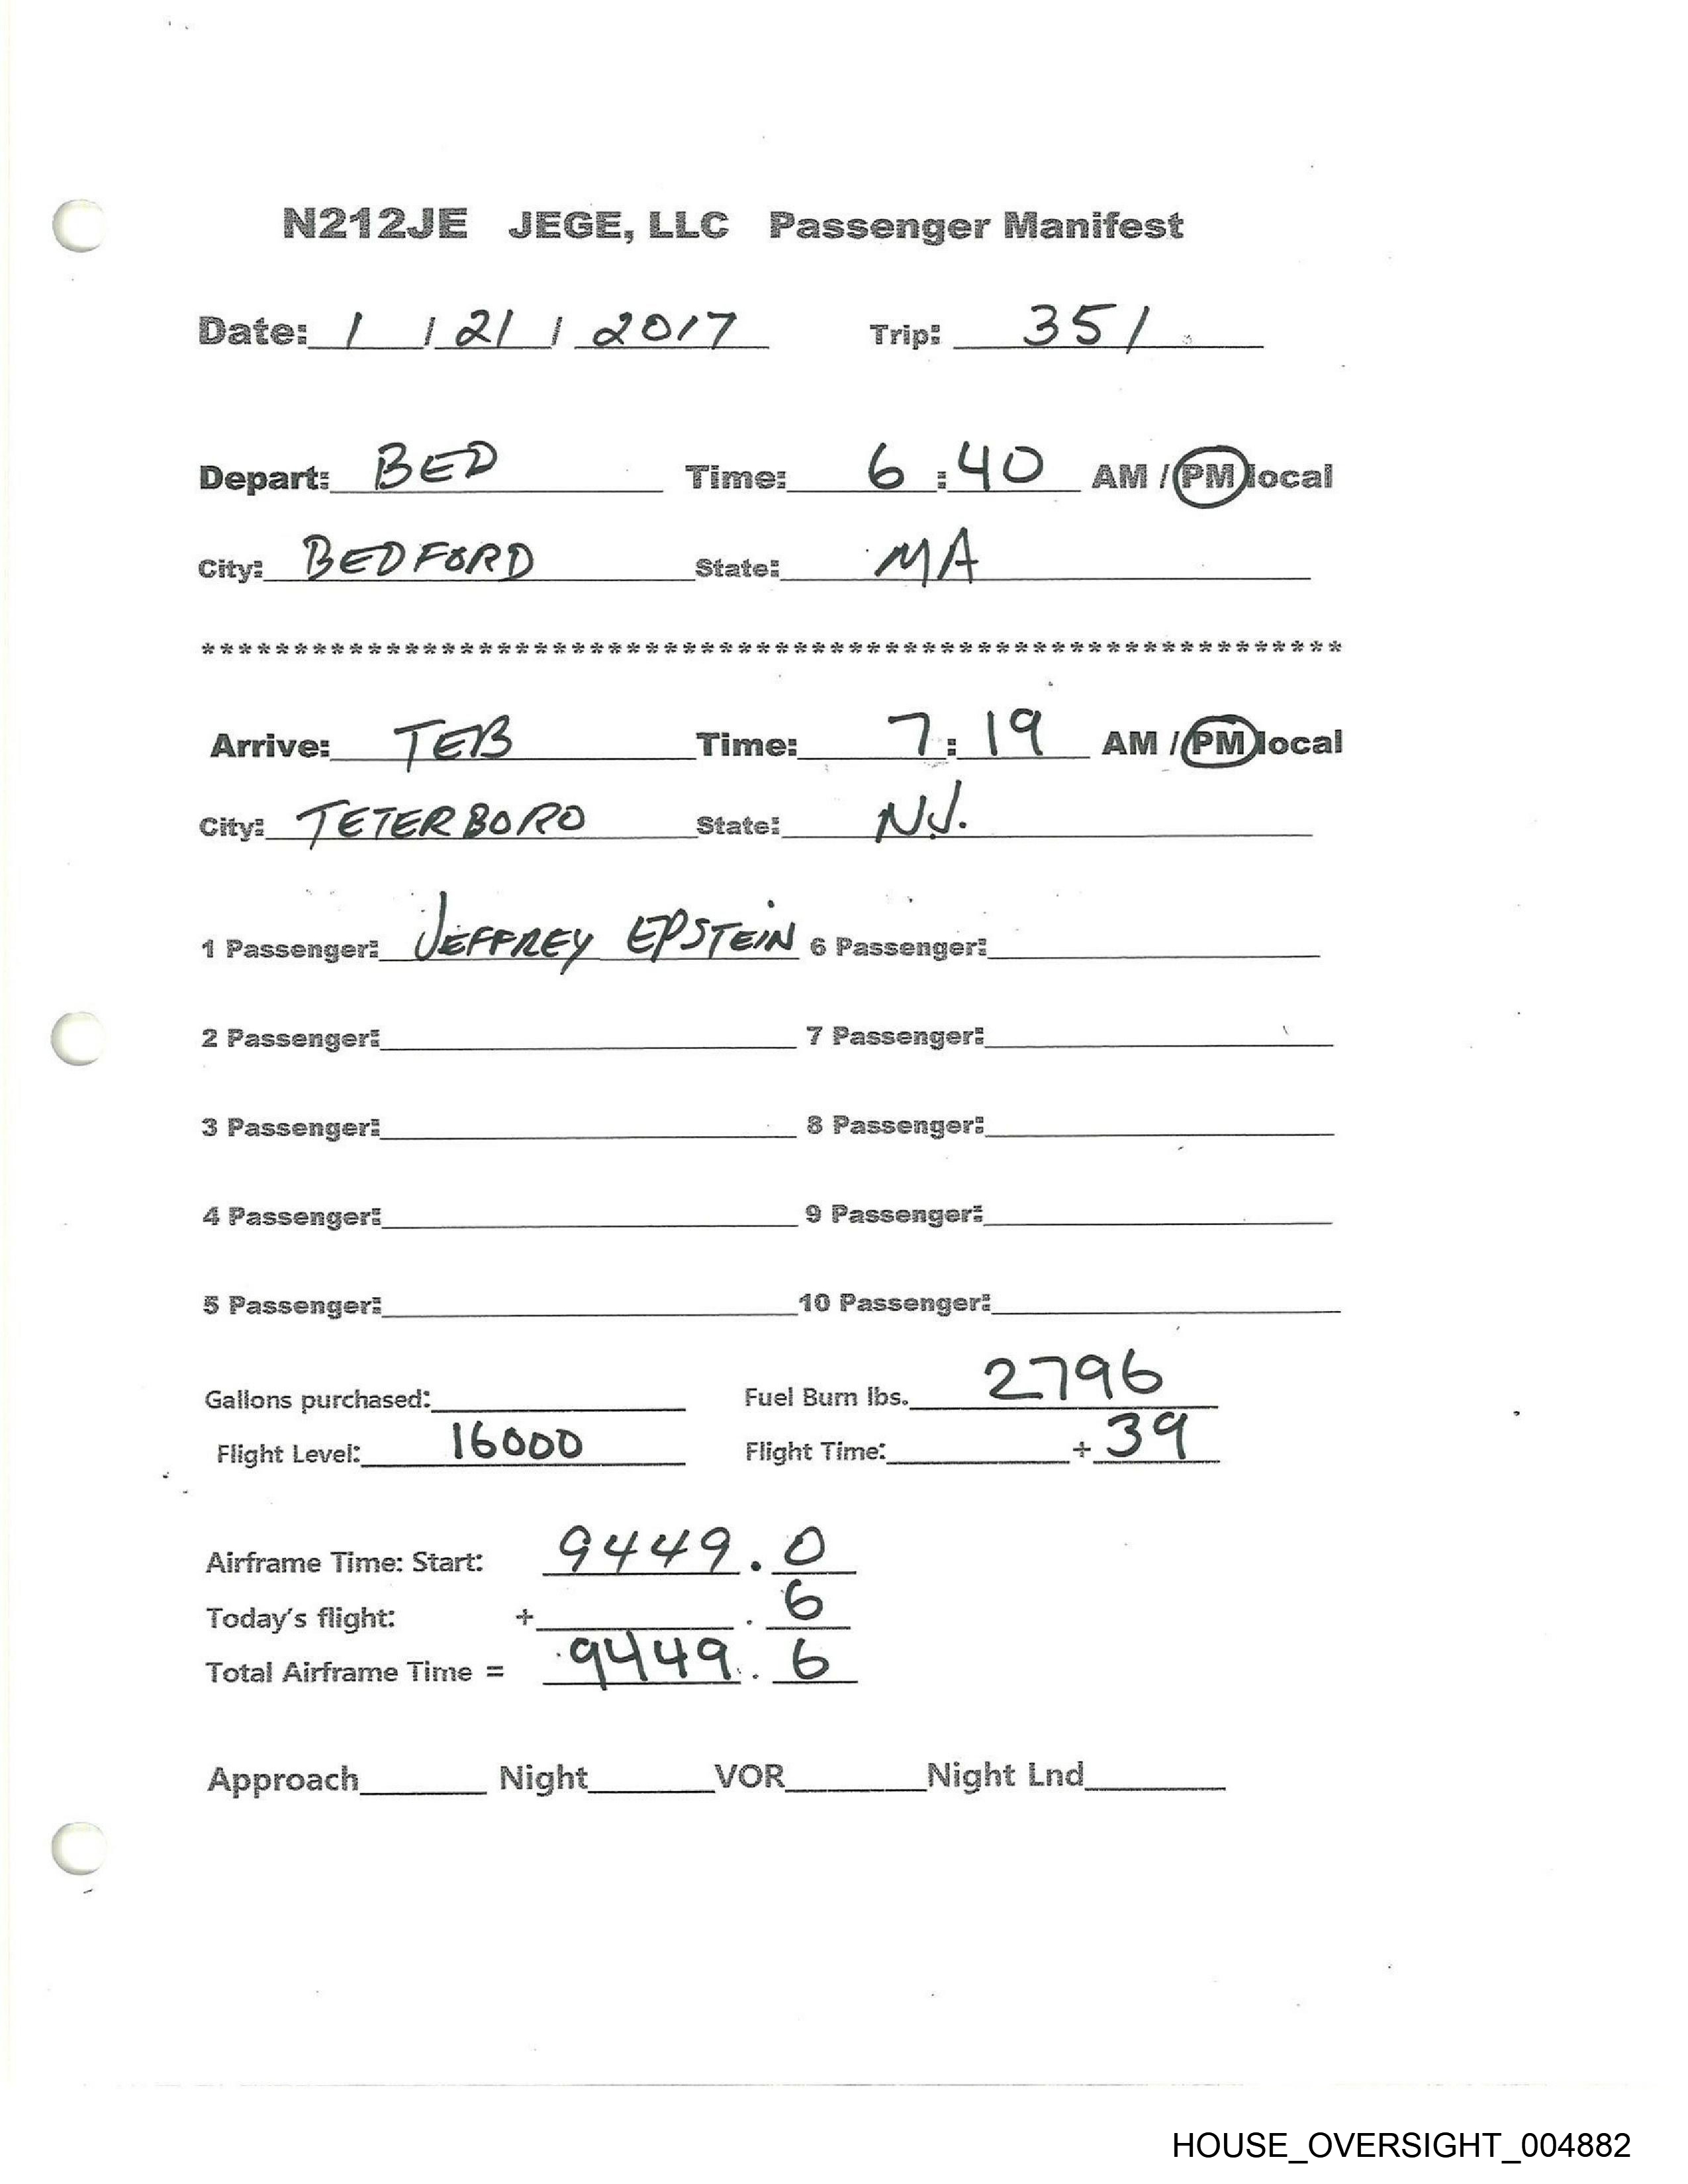 N212JE JEGE, LLC Passenger Manifest
Date: 1 / 21 / 2017 Trip: 351
Depart: BED Time: 6:40 AM / PM local
City: BEDFORD State: MA
*****************************************************************
Arrive: TEB Time: 7:19 AM / PM local
City: TETERBORO State: N.J.
1 Passenger: JEFFREY EPSTEIN 6 Passenger:
2 Passenger: 7 Passenger:
3 Passenger: 8 Passenger:
4 Passenger: 9 Passenger:
5 Passenger: 10 Passenger:
Gallons purchased: Fuel Burn lbs. 2796
Flight Level: 16000 Flight Time: + 39
Airframe Time: Start: 9449.0
Today's flight: + .6
Total Airframe Time = 9449.6
Approach Night VOR Night Lnd
HOUSE_OVERSIGHT_004882